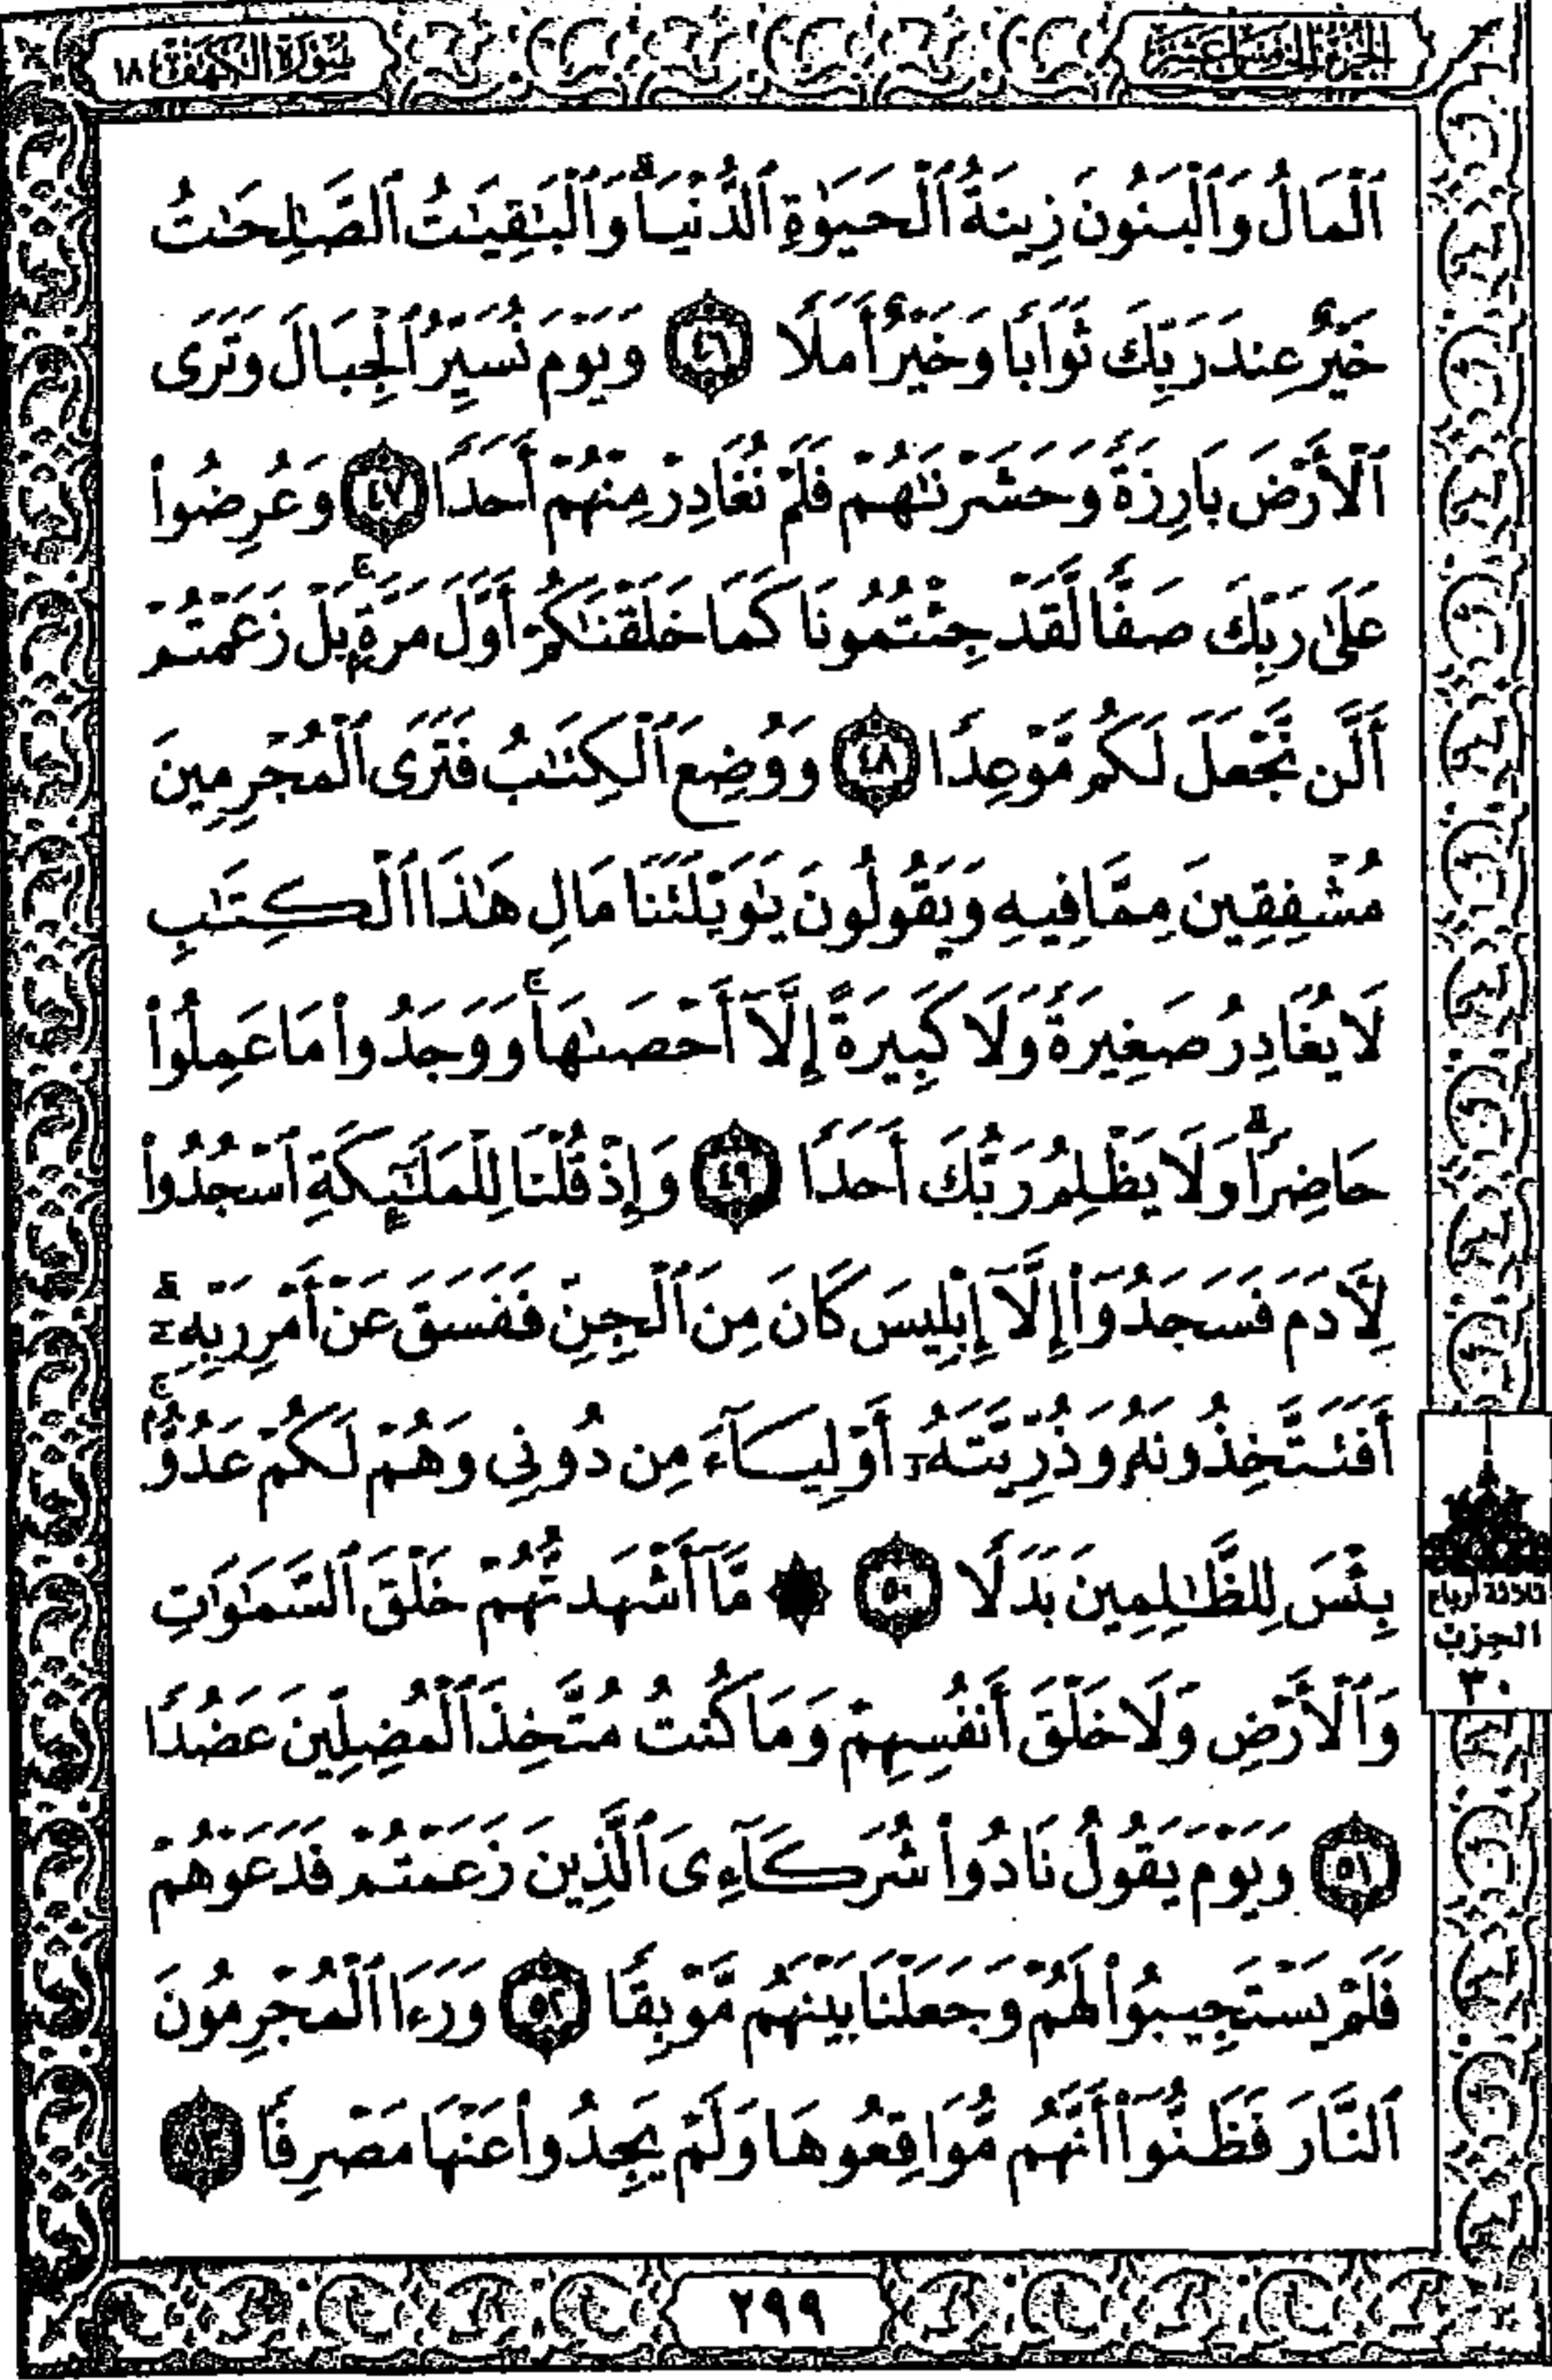 الجزء الخامس عشر
سورة الكهف ١٨
ٱلْمَالُ وَٱلْبَنُونَ زِينَةُ ٱلْحَيَوٰةِ ٱلدُّنْيَا ۖ وَٱلْبَـٰقِيَـٰتُ ٱلصَّـٰلِحَـٰتُ
خَيْرٌ عِندَ رَبِّكَ ثَوَابًا وَخَيْرٌ أَمَلًا ٤٦ وَيَوْمَ نُسَيِّرُ ٱلْجِبَالَ وَتَرَى
ٱلْأَرْضَ بَارِزَةً وَحَشَرْنَـٰهُمْ فَلَمْ نُغَادِرْ مِنْهُمْ أَحَدًا ٤٧ وَعُرِضُوا۟
عَلَىٰ رَبِّكَ صَفًّا لَّقَدْ جِئْتُمُونَا كَمَا خَلَقْنَـٰكُمْ أَوَّلَ مَرَّةٍۭ ۚ بَلْ زَعَمْتُمْ
أَلَّن نَّجْعَلَ لَكُم مَّوْعِدًا ٤٨ وَوُضِعَ ٱلْكِتَـٰبُ فَتَرَى ٱلْمُجْرِمِينَ
مُشْفِقِينَ مِمَّا فِيهِ وَيَقُولُونَ يَـٰوَيْلَتَنَا مَالِ هَـٰذَا ٱلْكِتَـٰبِ
لَا يُغَادِرُ صَغِيرَةً وَلَا كَبِيرَةً إِلَّآ أَحْصَىٰهَا ۚ وَوَجَدُوا۟ مَا عَمِلُوا۟
حَاضِرًا ۗ وَلَا يَظْلِمُ رَبُّكَ أَحَدًا ٤٩ وَإِذْ قُلْنَا لِلْمَلَـٰٓئِكَةِ ٱسْجُدُوا۟
لِـَٔادَمَ فَسَجَدُوٓا۟ إِلَّآ إِبْلِيسَ كَانَ مِنَ ٱلْجِنِّ فَفَسَقَ عَنْ أَمْرِ رَبِّهِۦٓ ۗ
أَفَتَتَّخِذُونَهُۥ وَذُرِّيَّتَهُۥٓ أَوْلِيَآءَ مِن دُونِى وَهُمْ لَكُمْ عَدُوٌّۢ ۚ
بِئْسَ لِلظَّـٰلِمِينَ بَدَلًا ٥٠ ۞ مَّآ أَشْهَدتُّهُمْ خَلْقَ ٱلسَّمَـٰوَٰتِ
وَٱلْأَرْضِ وَلَا خَلْقَ أَنفُسِهِمْ وَمَا كُنتُ مُتَّخِذَ ٱلْمُضِلِّينَ عَضُدًا
٥١ وَيَوْمَ يَقُولُ نَادُوا۟ شُرَكَآءِىَ ٱلَّذِينَ زَعَمْتُمْ فَدَعَوْهُمْ
فَلَمْ يَسْتَجِيبُوا۟ لَهُمْ وَجَعَلْنَا بَيْنَهُم مَّوْبِقًا ٥٢ وَرَءَا ٱلْمُجْرِمُونَ
ٱلنَّارَ فَظَنُّوٓا۟ أَنَّهُم مُّوَاقِعُوهَا وَلَمْ يَجِدُوا۟ عَنْهَا مَصْرِفًا ٥٣
ثلاثة أرباع
الحزب
٣٠
٢٩٩